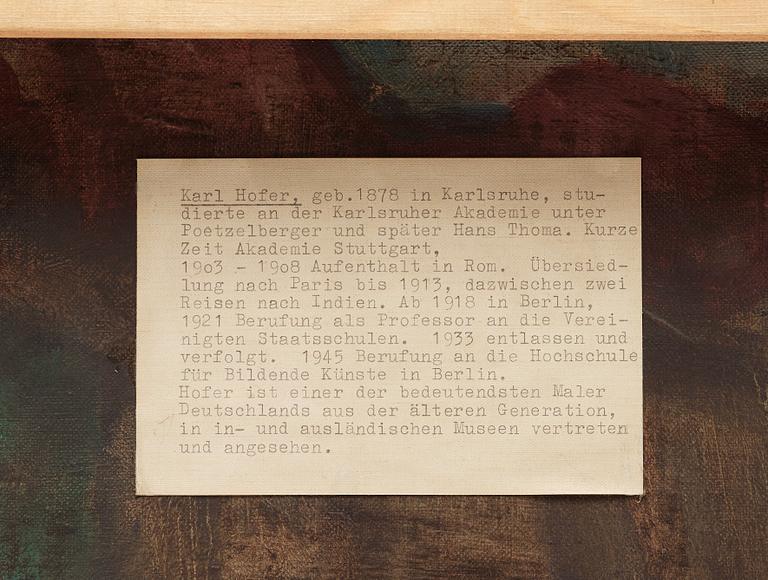 Karl Hofer, geb.1878 in Karlsruhe, stu-
dierte an der Karlsruher Akademie unter
Poetzelberger und später Hans Thoma. Kurze
Zeit Akademie Stuttgart,
1903 - 1908 Aufenthalt in Rom.  Übersied-
lung nach Paris bis 1913, dazwischen zwei
Reisen nach Indien. Ab 1918 in Berlin,
1921 Berufung als Professor an die Verei-
nigten Staatsschulen.  1933 entlassen und
verfolgt.  1945 Berufung an die Hochschule
für Bildende Künste in Berlin.
Hofer ist einer der bedeutendsten Maler
Deutschlands aus der älteren Generation,
in in- und ausländischen Museen vertreten
und angesehen.